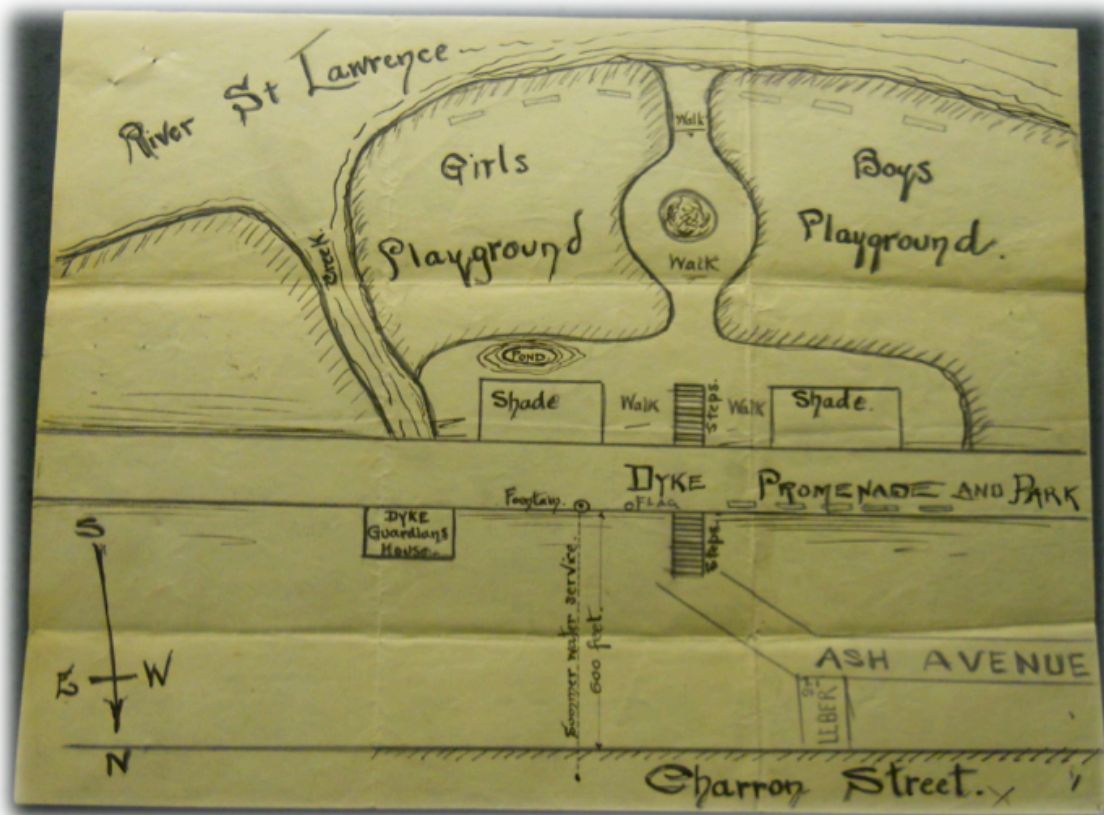 River St Lawrence
Walk
Girls
Playground
Boys
Playground.
Creek.
Walk
POND.
Shade
Walk
Steps.
Walk
Shade.
DYKE
PROMENADE AND PARK
Fountain.
FLAG
DYKE
Guardians
House.
Steps.
Summer water service.
600 feet.
ASH AVENUE
LEBER ST
S
E
W
N
Charron Street.